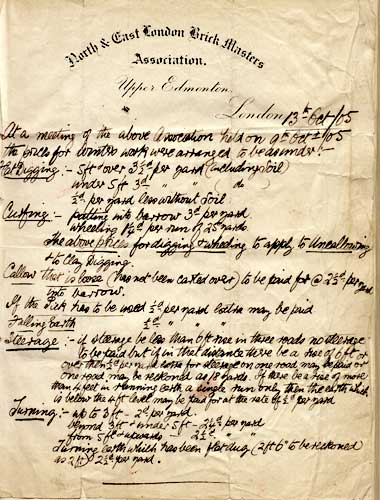 North & East London Brick Masters
Association.
Upper Edmonton.
London 13th Oct /05
At a meeting of the above Association held on 9th Oct /05
the prices for winters work were arranged to be as under:-
Digging :- 5ft & over 3½d per yard (including soil)
under 5ft 3d " " do
½d per yard less without soil
Casting :- putting into barrow 3d per yard
wheeling per run of 25 yards
The above prices for digging & wheeling to apply to Uncallowing
& to Clay Digging.
Callow that is loose (has not been casted over) to be paid for @ 2½d per yard
into barrow.
If the pick has to be used ½d per yard extra may be paid
Falling Earth ½d " " "
Steerage :- if steerage be less than 6ft rise in three roads no steerage
to be paid but if in that distance there be a rise of 6ft or
over then ½d per yard extra for steerage on one road may be paid or
one road may be reckoned as 18 yards. If there be a rise of more
than 4 feet in running earth a single run only then the earth which
is below the 4ft level may be paid for at the rate of ½d per yard
Turning :- up to 3ft - 2d per yard.
beyond 3ft & under 5ft - 2¼d per yard
from 5ft & upwards - 2½d " "
Turning earth which has been flat dug (2ft 6" to be reckoned
as 2ft) 2½d per yard.